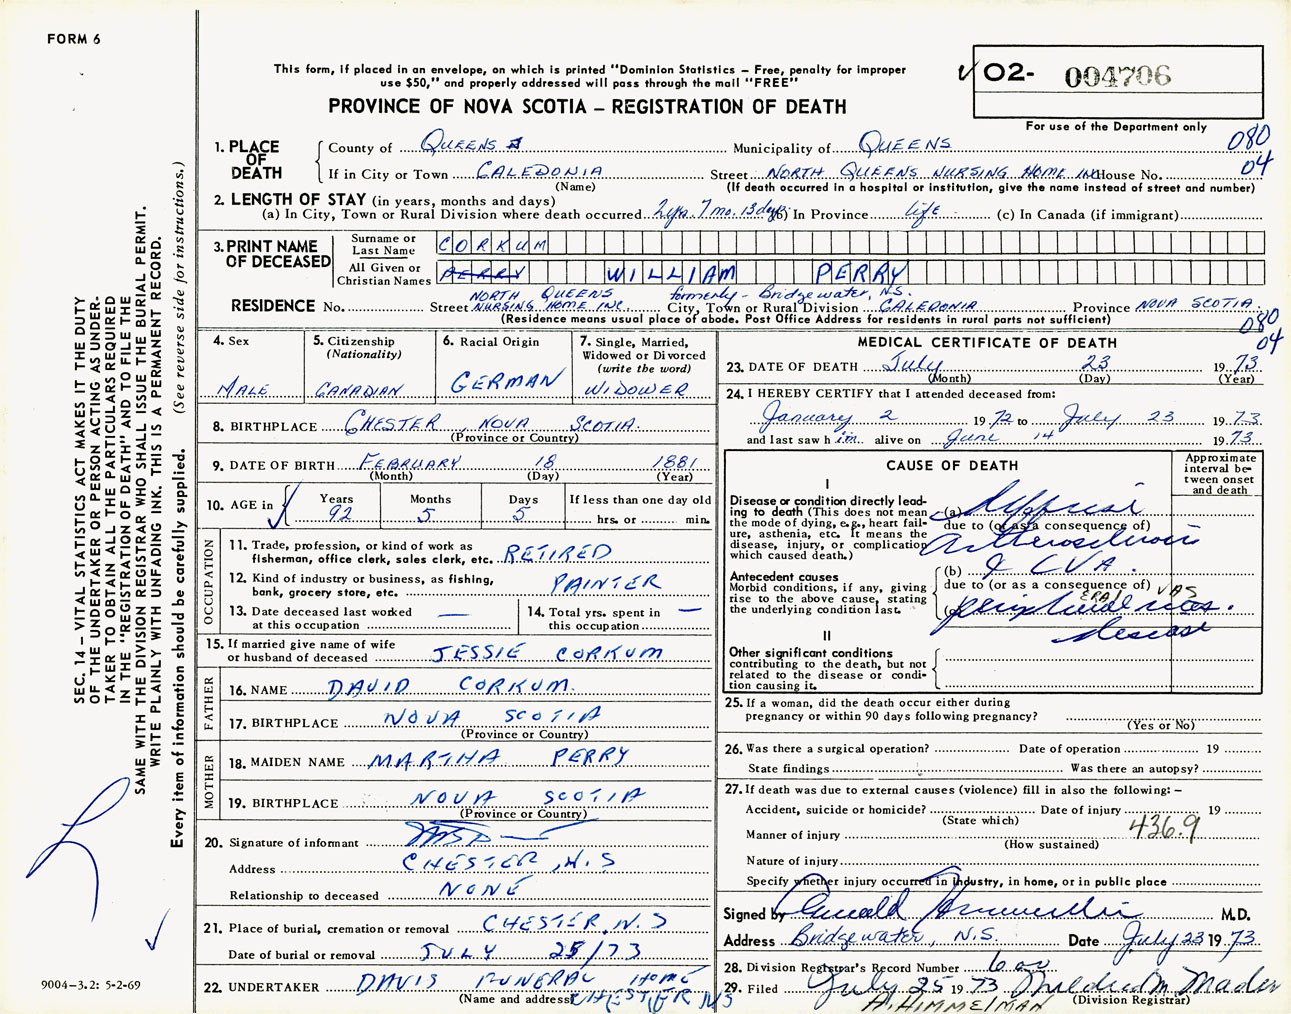 FORM 6
This form, if placed in an envelope, on which is printed "Dominion Statistics – Free, penalty for improper
use $50," and properly addressed will pass through the mail "FREE"
PROVINCE OF NOVA SCOTIA – REGISTRATION OF DEATH
02- 004706
For use of the Department only
080
04
1. PLACE OF DEATH
County of QUEENS Municipality of QUEENS
If in City or Town CALEDONIA Street NORTH QUEENS NURSING HOME INC House No.
(Name) (If death occurred in a hospital or institution, give the name instead of street and number)
2. LENGTH OF STAY (in years, months and days)
(a) In City, Town or Rural Division where death occurred 2 yrs. 7 mo. 13 days (b) In Province life (c) In Canada (if immigrant)
3. PRINT NAME OF DECEASED
Surname or Last Name CORKUM
All Given or Christian Names PERRY WILLIAM PERRY
NORTH QUEENS formerly - Bridgewater, N.S.
RESIDENCE No. Street NURSING HOME INC. City, Town or Rural Division CALEDONIA Province NOVA SCOTIA.
(Residence means usual place of abode. Post Office Address for residents in rural parts not sufficient)
080
04
4. Sex
MALE
5. Citizenship
(Nationality)
CANADIAN
6. Racial Origin
GERMAN
7. Single, Married,
Widowed or Divorced
(write the word)
WIDOWER
8. BIRTHPLACE CHESTER, NOVA SCOTIA.
(Province or Country)
9. DATE OF BIRTH FEBRUARY 18 1881
(Month) (Day) (Year)
10. AGE in
Years Months Days If less than one day old
92 5 5 hrs. or min.
OCCUPATION
11. Trade, profession, or kind of work as
fisherman, office clerk, sales clerk, etc. RETIRED
12. Kind of industry or business, as fishing,
bank, grocery store, etc. PAINTER
13. Date deceased last worked
at this occupation —
14. Total yrs. spent in
this occupation —
15. If married give name of wife
or husband of deceased JESSIE CORKUM
FATHER
16. NAME DAVID CORKUM.
17. BIRTHPLACE NOVA SCOTIA
(Province or Country)
MOTHER
18. MAIDEN NAME MARTHA PERRY
19. BIRTHPLACE NOVA SCOTIA
(Province or Country)
20. Signature of informant
Address CHESTER, N.S
Relationship to deceased NONE
21. Place of burial, cremation or removal CHESTER, N.S
Date of burial or removal JULY 25/73
22. UNDERTAKER DAVIS FUNERAL HOME
(Name and address) CHESTER NS
MEDICAL CERTIFICATE OF DEATH
23. DATE OF DEATH July 23 1973
(Month) (Day) (Year)
24. I HEREBY CERTIFY that I attended deceased from:
January 2 1972 to July 23 1973
and last saw him alive on June 14 1973
CAUSE OF DEATH
Approximate
interval be-
tween onset
and death
I
Disease or condition directly lead-
ing to death (This does not mean
the mode of dying, e.g., heart fail-
ure, asthenia, etc. It means the
disease, injury, or complication
which caused death.)
(a)
due to (or as a consequence of)
Antecedent causes
Morbid conditions, if any, giving
rise to the above cause, stating
the underlying condition last.
(b) CVA.
due to (or as a consequence of)
(c) peripheral vas.
ERAL VAS
disease
II
Other significant conditions
contributing to the death, but not
related to the disease or condi-
tion causing it.
25. If a woman, did the death occur either during
pregnancy or within 90 days following pregnancy?
(Yes or No)
26. Was there a surgical operation? Date of operation 19
State findings Was there an autopsy?
27. If death was due to external causes (violence) fill in also the following: –
Accident, suicide or homicide? Date of injury 19
(State which) 436.9
Manner of injury
(How sustained)
Nature of injury
Specify whether injury occurred in Industry, in home, or in public place
Signed by M.D.
Address Bridgewater, N.S. Date July 23 1973
28. Division Registrar's Record Number
29. Filed July 25 1973 Mildred M Mader
(Division Registrar)
A. HIMMELMAN
SEC. 14 – VITAL STATISTICS ACT MAKES IT THE DUTY
OF THE UNDERTAKER OR PERSON ACTING AS UNDER-
TAKER TO OBTAIN ALL THE PARTICULARS REQUIRED
IN THE "REGISTRATION OF DEATH" AND TO FILE THE
SAME WITH THE DIVISION REGISTRAR WHO SHALL ISSUE THE BURIAL PERMIT.
WRITE PLAINLY WITH UNFADING INK. THIS IS A PERMANENT RECORD.
Every item of information should be carefully supplied. (See reverse side for instructions.)
9004-3.2: 5-2-69